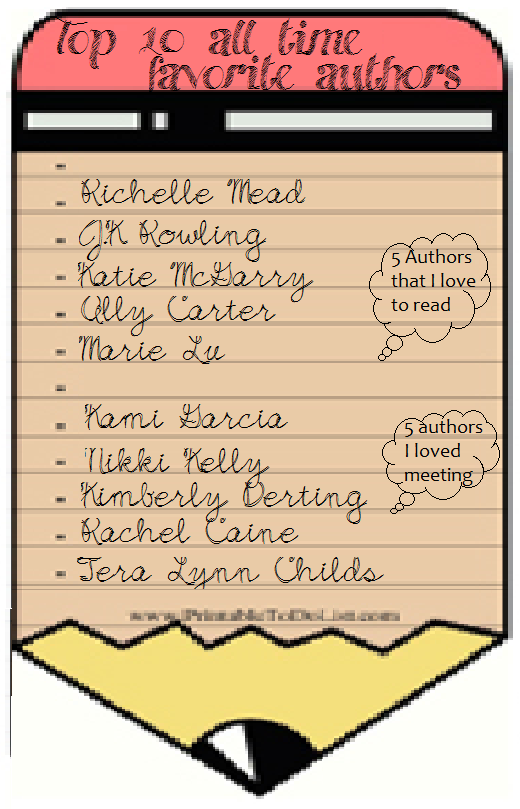 Top 10 all time
favorite authors
- 
- Richelle Mead
- J.K Rowling
- Katie McGarry
- Ally Carter
- Marie Lu
5 Authors
that I love
to read
- 
- Kami Garcia
- Nikki Kelly
- Kimberly Derting
- Rachel Caine
- Tera Lynn Childs
5 authors
I loved
meeting
www.PrintableToDoList.com